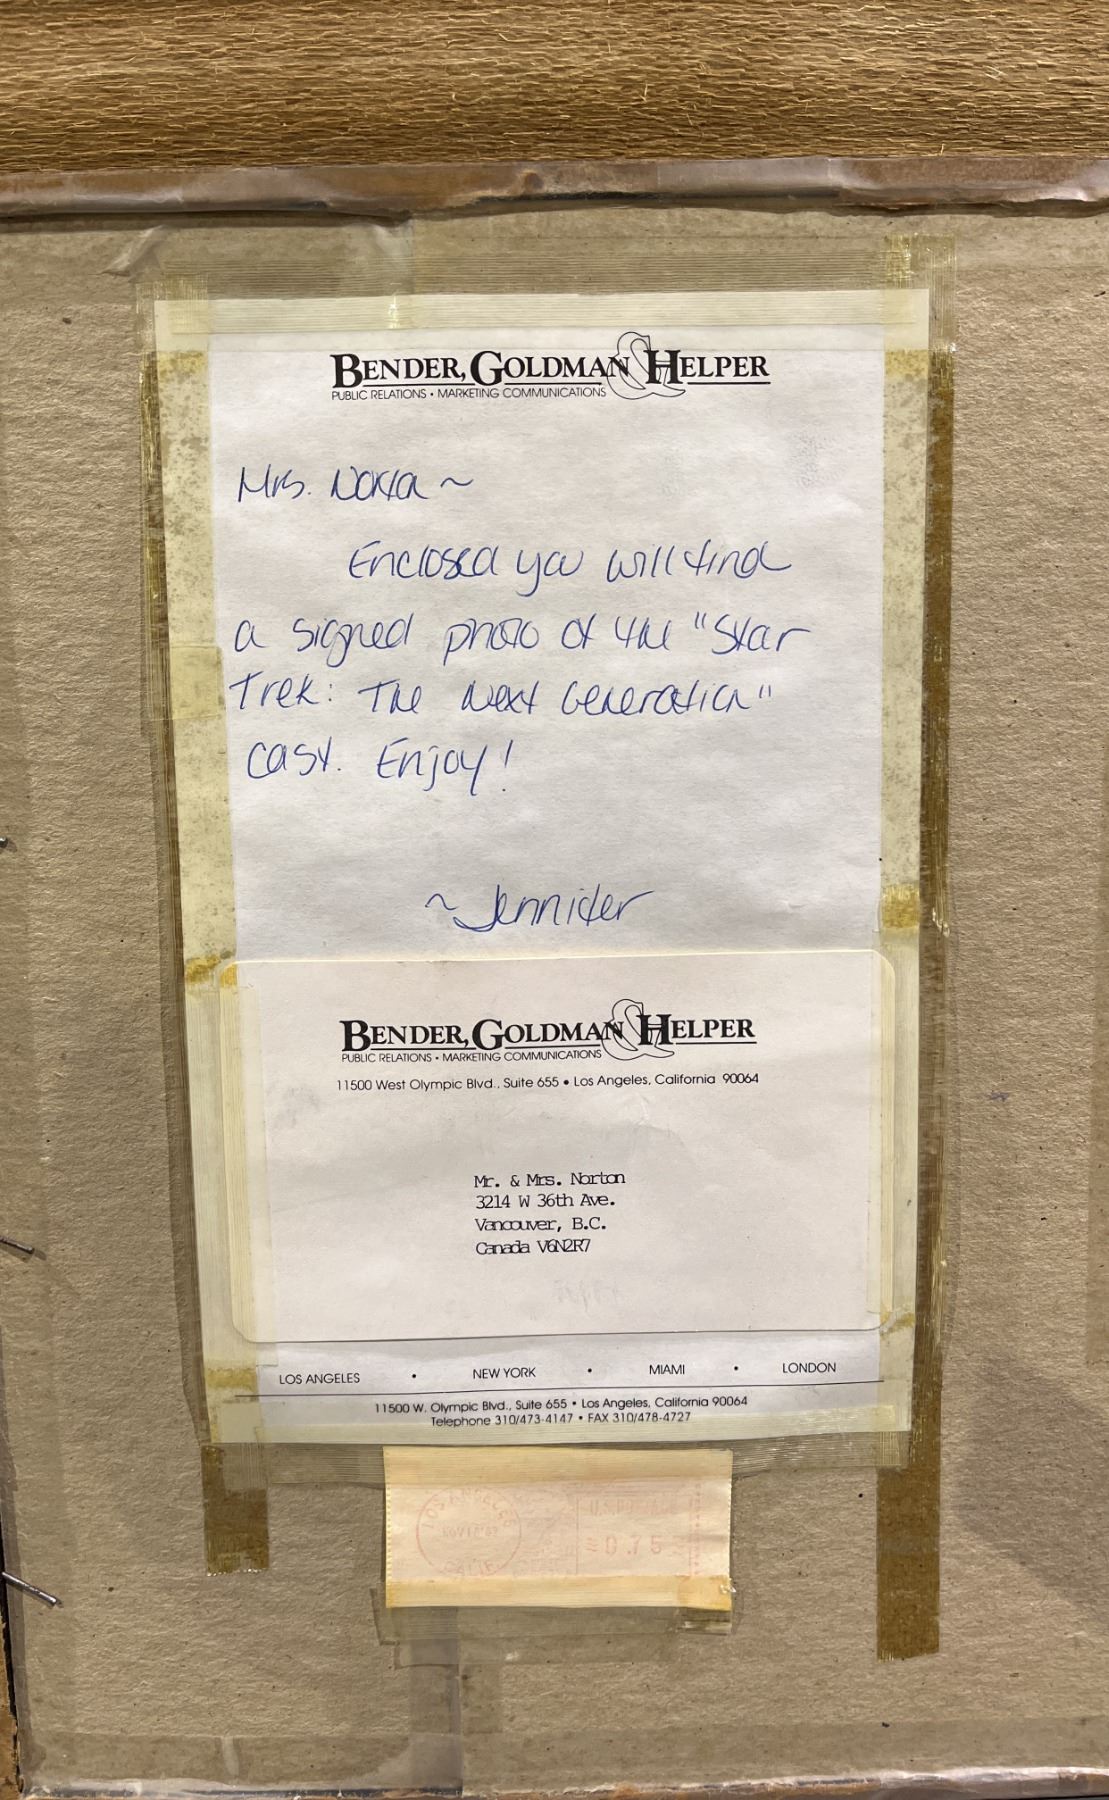 BENDER, GOLDMAN & HELPER
PUBLIC RELATIONS • MARKETING COMMUNICATIONS
Mrs.
Enclosed you will find
a signed photo of the "Star
Trek: The Next Generation"
cast. Enjoy!
~Jennifer
BENDER, GOLDMAN & HELPER
PUBLIC RELATIONS • MARKETING COMMUNICATIONS
11500 West Olympic Blvd., Suite 655 • Los Angeles, California 90064
Mr. & Mrs. Norton
3214 W 36th Ave.
Vancouver, B.C.
Canada V6N2R7
LOS ANGELES • NEW YORK • MIAMI • LONDON
11500 W. Olympic Blvd., Suite 655 • Los Angeles, California 90064
Telephone 310/473-4147 • FAX 310/478-4727
LOS ANGELES
CALIF
U.S. POSTAGE
0.75